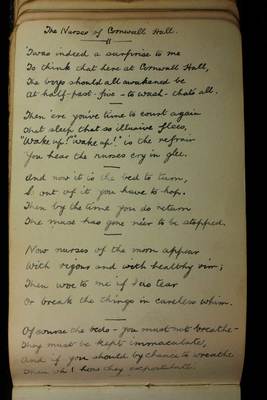 The Nurses of Cornwall Hall.
'Twas indeed a surprise to me
To think that here at Cornwall Hall,
The boys should all awakened be
At half-past-five - to wash - that's all.
Then ere you've time to court again
That sleep that so illusive flees,
"Wake up!" "Wake up!" is the refrain
You hear the nurses cry in glee.
And now it is the bed to turn,
& out of it you have to hop.
Then by the time you do return
The muse has gone ne'er to be stopped.
Now nurses of the morn appear
With vigour and with healthy vim;
Then woe to me if I so tear
Or break the things in careless whim.
Of course the beds - you must not breathe -
They must be kept immaculate,
And if you should by chance to wreathe
Then oh! how they expostulate.